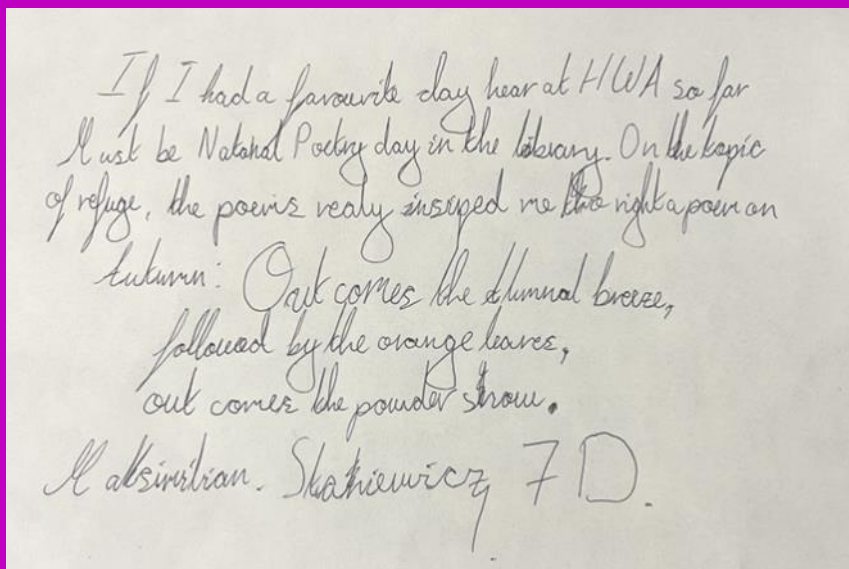 If I had a favourite day hear at HWA so far
Must be National Poetry day in the library. On the topic
of refuge, the poems realy insiped me two right a poem on
Autumn: Out comes the breeze,
followed by the orange leaves,
out comes the powder snow.
Maksimilian. 7D.